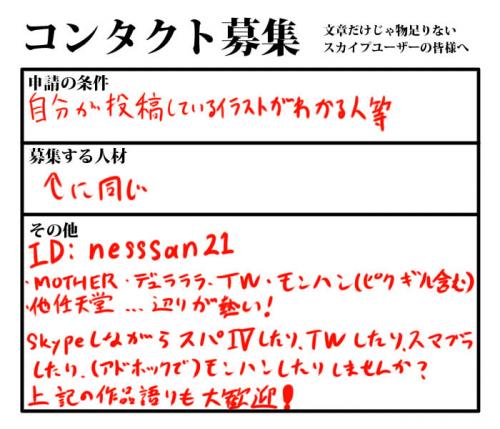 コンタクト募集
文章だけじゃ物足りない
スカイプユーザーの皆様へ
申請の条件
自分が投稿しているイラストがわかる人等
募集する人材
↑に同じ
その他
ID: nesssan21
・MOTHER・デュラララ・TW・モンハン(ピクギル含む)
・他任天堂…辺りが熱い!
skypeしながらスパⅣしたり、TWしたり、スマブラ
したり、(アドホックで)モンハンしたりしませんか?
上記の作品語りも大歓迎!